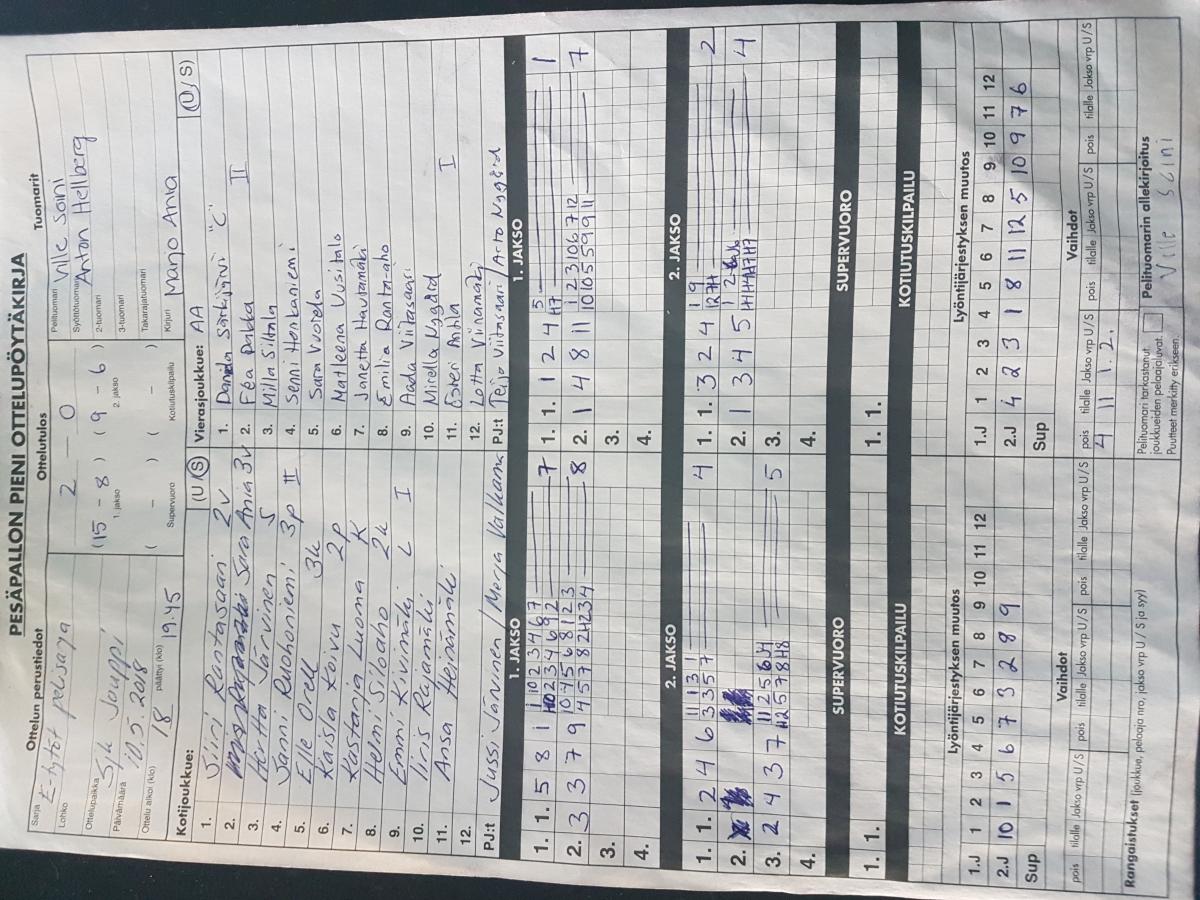 PESÄPALLON PIENI OTTELUPÖYTÄKIRJA
Ottelun perustiedot
Sarja
E-tytöt pelisarja
Lohko
Ottelupaikka
Sjk Jouppi
Päivämäärä
10.5.2018
Ottelu alkoi (klo) 18 päättyi (klo) 19.45
Ottelutulos
2 - 0
(15 - 8) (9 - 6)
1. jakso 2. jakso
( - ) ( - )
Supervuoro Kotiutuskilpailu
Tuomarit
Pelituomari Ville Saini
Syöttötuomari Anton Hellberg
2-tuomari
3-tuomari
Takarajatuomari
Kirjuri Marjo Ania
Kotijoukkue: (U/S)
1. Siiri Rintasaari 2v
2. Sara Ania 3v
3. Hertta Järvinen S
4. Janni Ruohoniemi 3p II
5. Elle Orell 3k
6. Kaisla Koivu 2p
7. Kastanja Luoma K
8. Helmi Siloaho 2k
9. Emmi Kivimäki L I
10. Iiris Rajamäki
11. Ansa Heinämäki
12.
PJ:t Jussi Järvinen / Merja Välkama
Vierasjoukkue: AA (U/S)
1. Daniela "C"
2. Eea Pakka II
3. Milla Siltala
4. Senni Honkaniemi
5. Sara Vuorela
6. Matleena Uusitalo
7. Janetta Hautamäki
8. Emilia Ranta-aho
9. Aada Viitasaari
10. Mirella Nygård
11. Esteri Antila I
12. Lotta Viinamäki
PJ:t Teijo Viitasaari / Arto Nygård
1. JAKSO
1. 1. 5 8 1 7
2. 3 3 7 9 8
3.
4.
1. JAKSO
1. 1. 1 2 4 5 1
2. 1 4 8 11 7
3.
4.
2. JAKSO
1. 1. 2 4 6 4
2.
3. 2 4 3 7 5
4.
2. JAKSO
1. 1. 3 2 4 2
2. 1 3 4 5 4
3.
4.
SUPERVUORO
1. 1.
SUPERVUORO
1. 1.
KOTIUTUSKILPAILU
KOTIUTUSKILPAILU
Lyöntijärjestyksen muutos
1.J 1 2 3 4 5 6 7 8 9 10 11 12
2.J 10 1 5 6 7 3 2 8 9
Sup
Lyöntijärjestyksen muutos
1.J 1 2 3 4 5 6 7 8 9 10 11 12
2.J 4 2 3 1 8 11 12 5 10 9 7 6
Sup
Vaihdot
pois tilalle Jakso vrp U/S pois tilalle Jakso vrp U/S pois tilalle Jakso vrp U/S
Vaihdot
pois tilalle Jakso vrp U/S pois tilalle Jakso vrp U/S pois tilalle Jakso vrp U/S
4 11 1. 2.
Rangaistukset (joukkue, pelaaja nro, jakso vrp U / S ja syy)
Pelituomari tarkastanut
joukkueiden pelaajaluvat.
Puutteet merkitty erikseen.
Pelituomarin allekirjoitus
Ville Saini